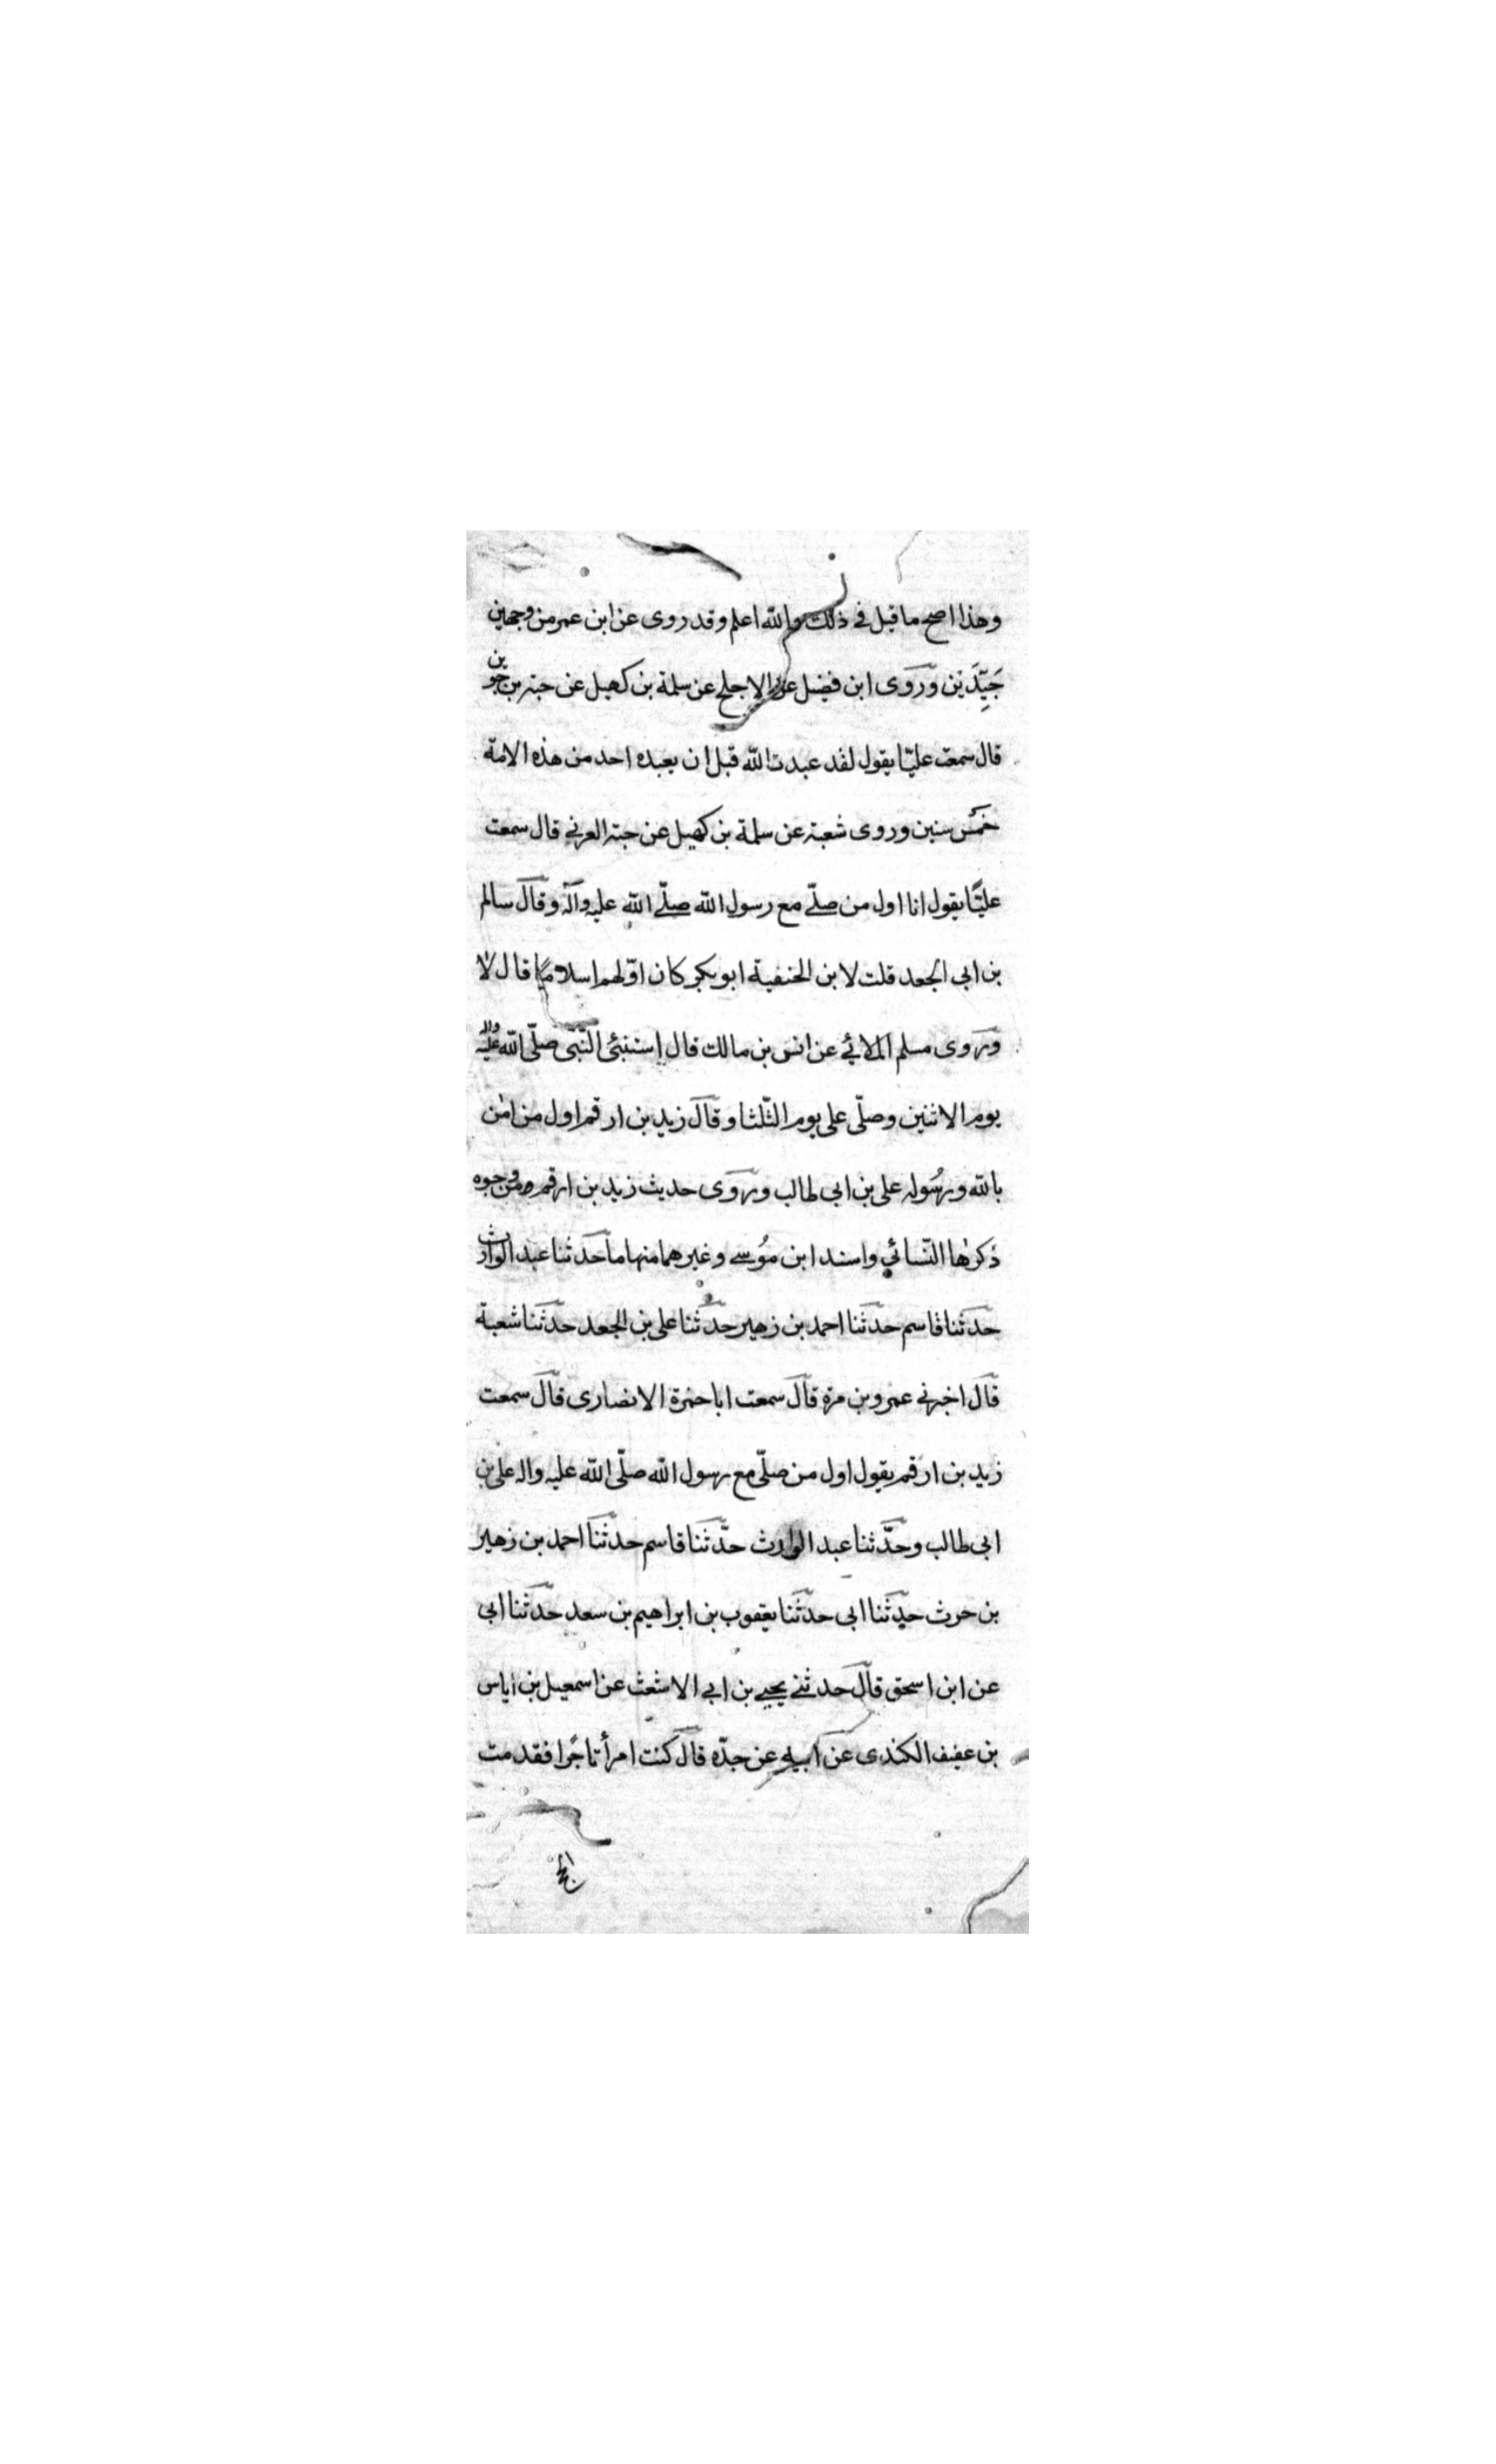 وهذا اصح ما قيل في ذلك والله اعلم وقد روى عن ابن عمر من وجهين
جَيِّدَين ورَوى ابن فضيل عن الاجلح عن سلمة بن كهيل عن حبة بن جوين
قال سمعت عليّا يقول لقد عبدت الله قبل ان يعبده احد من هذه الامة
خمس سنين وروى شعبة عن سلمة بن كهيل عن حبة العرني قال سمعت
عليًّا يقول انا اول من صلّے مع رسول الله صلّے الله عليه وآله وقال سالم
بن ابى الجعد قلت لابن الحنفية ابوبكر كان اوّلهم اسلامًا قال لا
ورَوى مسلم الملائي عن انس بن مالك قال استنبئ النّبى صلّى الله عليه واله
يوم الاثنين وصلّى على يوم الثّلثا وقال زيد بن ارقم اول من امن
بالله ورسُوله على بن ابى طالب ورَوى حديث زيد بن ارقم من وجوه
ذكرها النّسائي واسند ابن مُوسے وغيرهما منها ما حدثنا عبد الوارث
حدثنا قاسم حدثنا احمد بن زهير حدّثنا على بن الجعد حدّثنا شعبة
قال اخبرنے عمرو بن مرة قال سمعت ابا حمزة الانصارى قال سمعت
زيد بن ارقم يقول اول من صلّى مع رسول الله صلّى الله عليه واله على بن
ابى طالب وحدّثنا عبد الوارث حدّثنا قاسم حدّثنا احمد بن زهير
بن حرث حدّثنا ابى حدّثنا يعقوب بن ابراهيم بن سعد حدّثنا ابى
عن ابن اسحق قال حدثنے يحيے بن ابي الاشعث عن اسمعيل بن اياس
بن عفيف الكندى عن ابيه عن جدّه قال كنت امرأ تاجرًا فقدمت
الحج